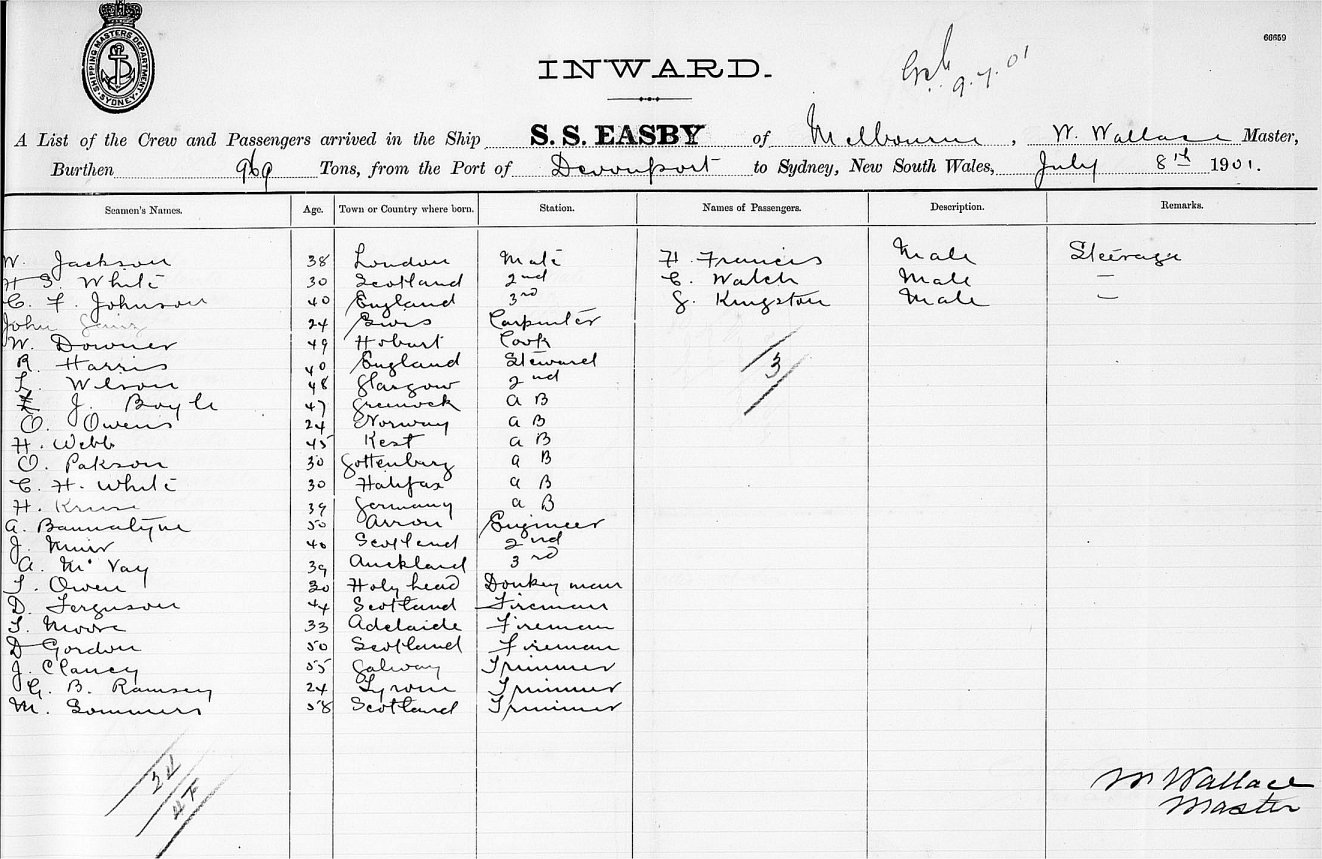 SHIPPING MASTERS DEPARTMENT SYDNEY
66659
INWARD.
9.7.01
A List of the Crew and Passengers arrived in the Ship S. S. EASBY of Melbourne, W. Wallace Master,
Burthen 969 Tons, from the Port of Devonport to Sydney, New South Wales, July 8th 1901.
Seamen's Names. Age. Town or Country where born. Station. Names of Passengers. Description. Remarks.
W. Jackson 38 London Mate H. Francis Male Steerage
H S. White 30 Scotland 2nd C. Walch Male —
C. F. Johnson 40 England 3rd G. Kingston Male —
John 24 Swis Carpenter
W. Downer 49 Hobart Cook
R. Harris 40 England Steward
L. Wilson 48 Glasgow 2nd
J. Boyle 47 Greenock A B
O. Owens 24 Norway A B
H. Webb 45 Kest A B
O. Pakson 30 Gottenburg A B
C. H. White 30 Halifax A B
H. Kruse 39 Germany A B
A. Bannatyne 50 Arron Engineer
J. Muir 40 Scotland 2nd
A. McVay 39 Auckland 3rd
T. Owen 30 Holy head Donkey man
D. Ferguson 44 Scotland Fireman
T. Moore 33 Adelaide Fireman
D Gordon 50 Scotland Fireman
J. Clancy 55 Galway Trimmer
G. B. Ramsey 24 Tyrone Trimmer
M. Sommers 58 Scotland Trimmer
3
W Wallace
Master